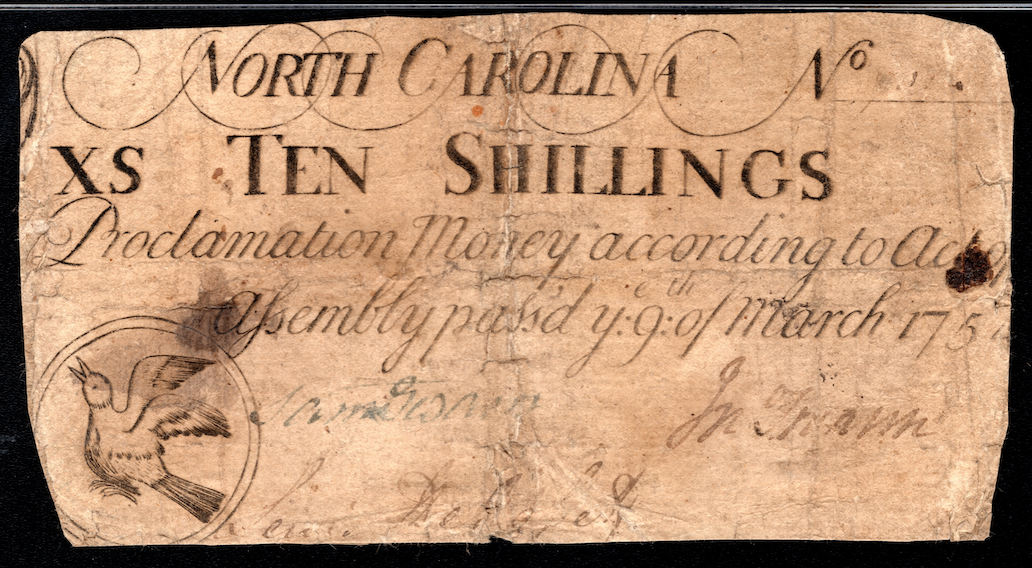 NORTH CAROLINA No
XS TEN SHILLINGS
Proclamation Money according to Act of
Assembly pass'd ye: 9:th of March 175
Jn Swann